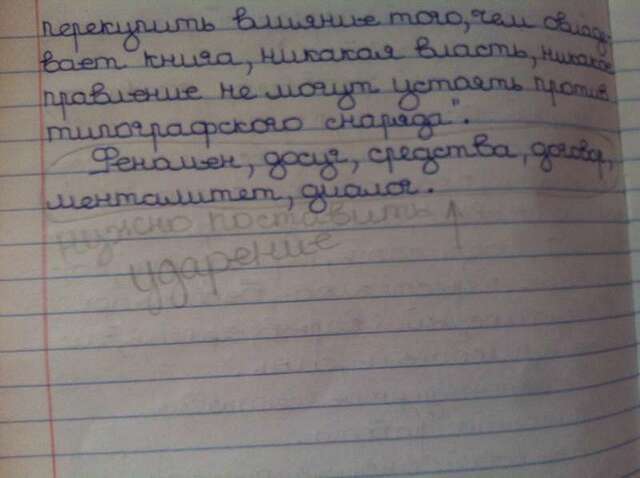 перекупить влиянье того, чем овладе-
вает книга, никакая власть, никакое
правление не могут устоять против
типографского снаряда".
Феномен, досуг, средства, договор,
менталитет, диалог.
нужно поставить ↑
ударение